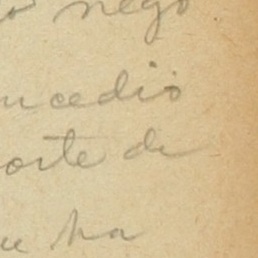 o nego
ucedio
orte de
ue ha